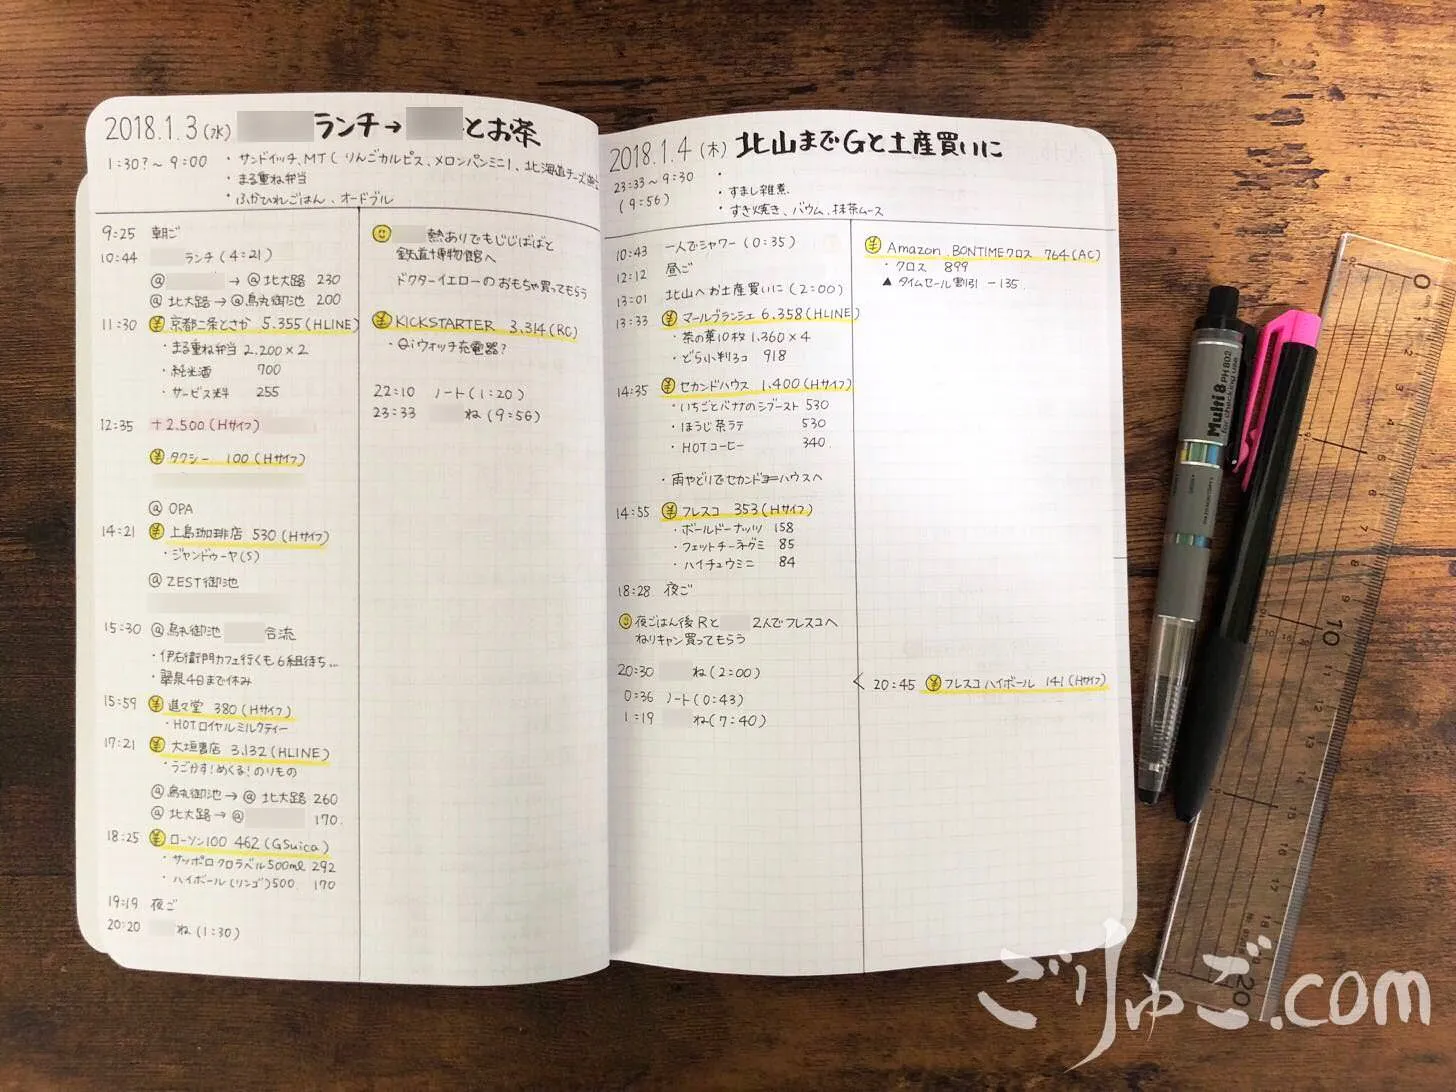 2018.1.3(水) ランチ→ とお茶
1:30?～9:00 ・サンドイッチ、MT(りんごカルピス、メロンパンミニ1、北海道チーズ
・まる重ね弁当
・ふかひれごはん、オードブル
9:25 朝ご
10:44 ランチ(4:21)
@ → @北大路 230
@北大路→@烏丸御池 200
11:30 ¥京都二条とさか 5.355(HLINE)
・まる重ね弁当 2.200×2
・純米酒 700
・サービス料 255
12:35 +2.500(Hサイフ)
¥タクシー 100(Hサイフ)
@OPA
14:21 ¥上島珈琲店 530(Hサイフ)
・ジャンドゥーヤ(S)
@ZEST御池
15:30 @烏丸御池 合流
・伊右衛門カフェ行くも6組待ち...
・翠泉4日まで休み
15:59 ¥進々堂 380(Hサイフ)
・HOTロイヤルミルクティー
17:21 ¥大垣書店 3.132(HLINE)
・うごかす!めくる!のりもの
@烏丸御池→@北大路 260
@北大路→@ 170.
18:25 ¥ローソン100 462(GSuica)
・サッポロクロラベル500ml 292
・ハイボール(リンゴ)500. 170
19:19 夜ご
20:20 ね(1:30)
熱ありでもじじばばと
鉄道博物館へ
ドクターイエローのおもちゃ買ってもらう
¥KICKSTARTER 3.314(RC)
・Qiウォッチ充電器?
22:10 ノート(1:20)
23:33 ね(9:56)
2018.1.4(木) 北山までGと土産買いに
23:33～9:30 ・
(9:56) ・すまし雑煮.
・すき焼き、バウム、抹茶ムース
10:43 一人でシャワー(0:35)
12:12 昼ご
13:01 北山へお土産買いに(2:00)
13:33 ¥マールブランシェ 6.358(HLINE)
・茶の菓10枚 1.360×4
・どら小判3コ 918
14:35 ¥セカンドハウス 1.400(Hサイフ)
・いちごとバナナのシブースト 530
・ほうじ茶ラテ 530
・HOTコーヒー 340.
・雨やどりでセカンドハウスへ
14:55 ¥フレスコ 353(Hサイフ)
・ボールドーナッツ 158
・フェットチーネグミ 85
・ハイチュウミニ 84
18:28 夜ご
夜ごはん後Rと 2人でフレスコへ
ねりキャン買ってもらう
20:30 ね(2:00)
0:36 ノート(0:43)
1:19 ね(7:40)
¥Amazon.BONTIMEクロス 764(AC)
・クロス 899
▲タイムセール割引 -135.
<20:45 ¥フレスコ ハイボール 141(Hサイフ)
Multi 8 PH 802
for checking use
0
10
20
ごりゅご.com